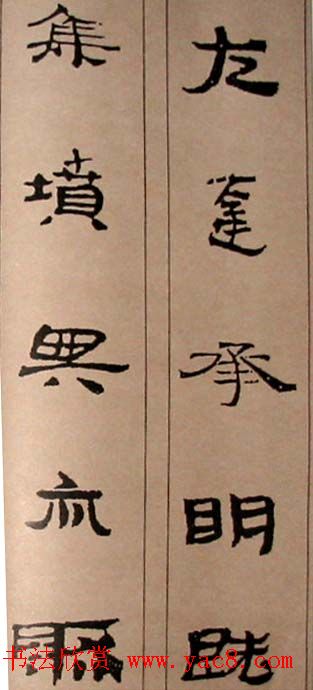 左達承明既
集墳典亦聚
书法欣赏 www.yac8.com